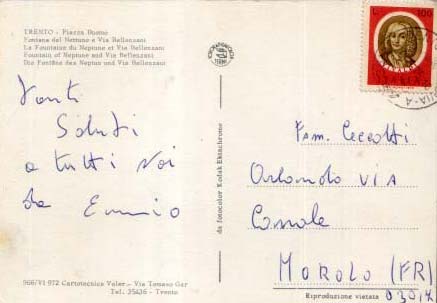 TRENTO - Piazza Duomo
Fontana del Nettuno e Via Bellenzani
La Fountaine du Neptune et Via Bellenzani
Fountain of Neptune und Via Bellenzani
Die Fontäne des Neptun und Via Bellenzani
Tanti
Saluti
a tutti voi
da Ennio
966/VI-972 Cartotecnica Valer - Via Tomaso Gar
Tel. 35426 - Trento
da fotocolor Kodak Ektachrome
100
Fam. Ceccotti
Orlando VIA
Casale
MOROLO (FR)
Riproduzione vietata